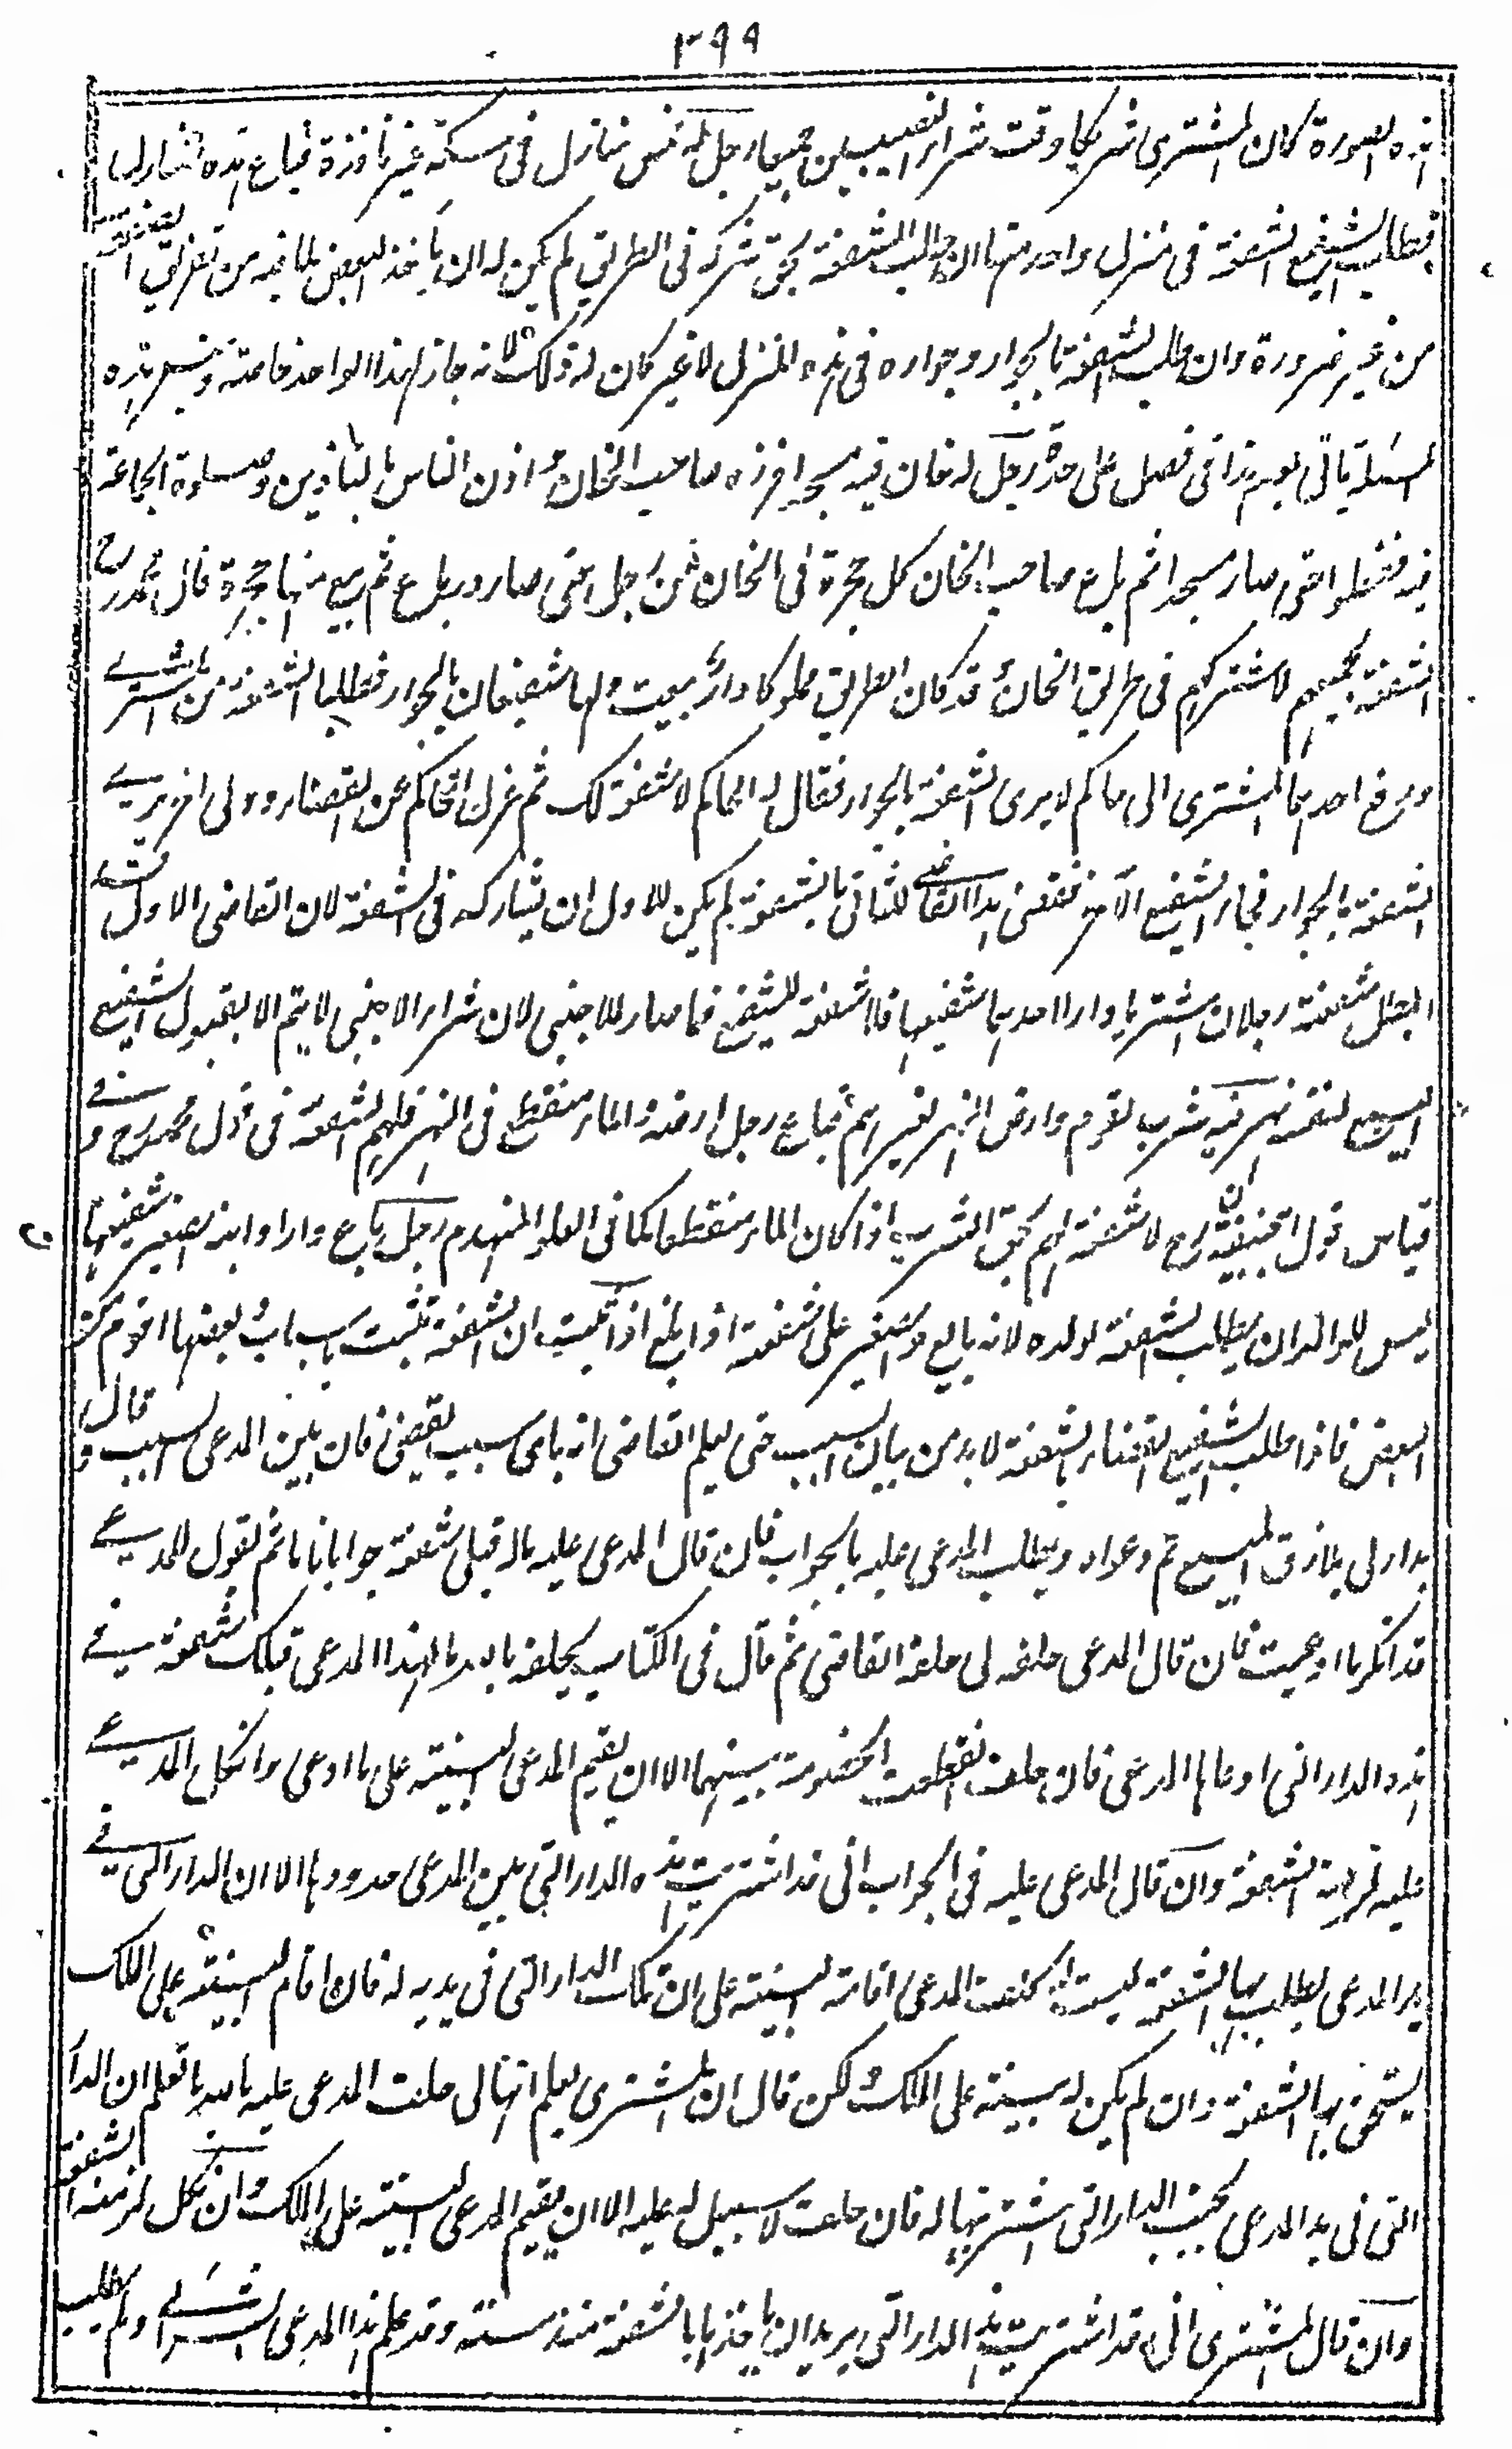 ٣٩٩
هذه الصورة كان المشترى شريكا وقت شراء النصيبين جميعا رجل له خمس منازل فى سكة غير نافذة فباع هذه المنازل
فطلب الشفيع الشفعة فى منزل واحد منها ان طلب الشفعة بحق شركة فى الطريق لم يكن له ان يأخذ البعض لما فيه من تفريق الصفقة
من غير ضرورة وان طلب الشفعة بالجوار وجواره فى هذه المنزل لا غير كان له ذلك لانه جار لهذا الواحد خاصة وجنس هذه
المسئلة يأتى بعد هذا فى فصل على حدة رجل له خان فيه مسجد افرزه صاحب الخان و اذن الناس بالتأذين وصلوة الجماعة
فيه ففعلوا حتى صار مسجدا ثم باع صاحب الخان كل حجرة فى الخان من رجل حتى صار دربا ثم بيع منها حجرة قال محمد رح
الشفعة لجميعهم لاشتراكهم فى طريق الخان و قد كان الطريق مملوكا دار بيعت ولها شفيعان بالجوار فطلبا الشفعة من المشترى
ورفع احدهما المشترى الى حاكم لا يرى الشفعة بالجوار فقال له الحاكم لا شفعة لك ثم عزل الحاكم عن القضاء و ولى اخر يرى
الشفعة بالجوار فجاء الشفيع الآخر فقضى هذا القاضى للثانى بالشفعة لم يكن للاول ان يشاركه فى الشفعة لان القاضى الاول قد
ابطل شفعته رجلان اشتريا دارا احدهما شفيعها فلا شفعة للشفيع فيما صار للاجنبى لان شراء الاجنبى لا يتم الا بقبول الشفيع
البيع لنفسه نهر فيه شرب لقوم وارض النهر لغيرهم فباع رجل ارضه والماء منقطع فى النهر فلهم الشفعة فى قول محمد رح و فى
قياس قول ابى حنيفة رح لا شفعة لهم بحق الشرب اذا كان الماء منقطعا كما فى العلو المنهدم رجل باع دارا وابنه الصغير شفيعها
ليس للوالد ان يطلب الشفعة لولده لانه بايع والصغير على شفعته اذا بلغ اذا ثبت ان الشفعة تثبت باسباب بعضها اقوى من
البعض فاذا طلب الشفيع القضاء بالشفعة لا بد من بيان السبب حتى يعلم القاضى انه باى سبب يقضى فان بين المدعى السبب و قال
بدار لى تلازق المبيع تم دعواه ويطلب المدعى عليه بالجواب فان قال المدعى عليه ماله قبلى شفعة جوابا تاما ثم يقول للمدعى
قد انكر ما ادعيت فان قال المدعى حلفه لى حلفه القاضى ثم قال فى الكتاب يحلفه بالله ما لهذا المدعى قبلك شفعة فى
هذه الدار التى ادعاها المدعى فان حلف انقطعت الخصومة بينهما الا ان يقيم المدعى البينة على ما ادعى وان نكل المدعى
عليه لزمته الشفعة وان قال المدعى عليه فى الجواب انى قد اشتريت هذه الدار التى بين المدعى حدودها الا ان الدار التى فى
يد المدعى يطلب بها الشفعة ليست له كلف المدعى اقامة البينة على ان تلك الدار التى فى يديه له فان اقام البينة على الملك
يستحق بها الشفعة وان لم يكن له بينة على الملك و لكن قال ان المشترى يعلم انها لى حلف المدعى عليه بالله ما تعلم ان الدار
التى فى يد المدعى بجنب الدار التى اشتريتها له فان حلف لا سبيل له عليه الا ان يقيم المدعى البينة على الملك وان نكل لزمته الشفعة
وان قال المشترى انى قد اشتريت هذه الدار التى يريد ان يأخذها بالشفعة منذ سنة وقد علم هذا المدعى الشراء ولم يطلب